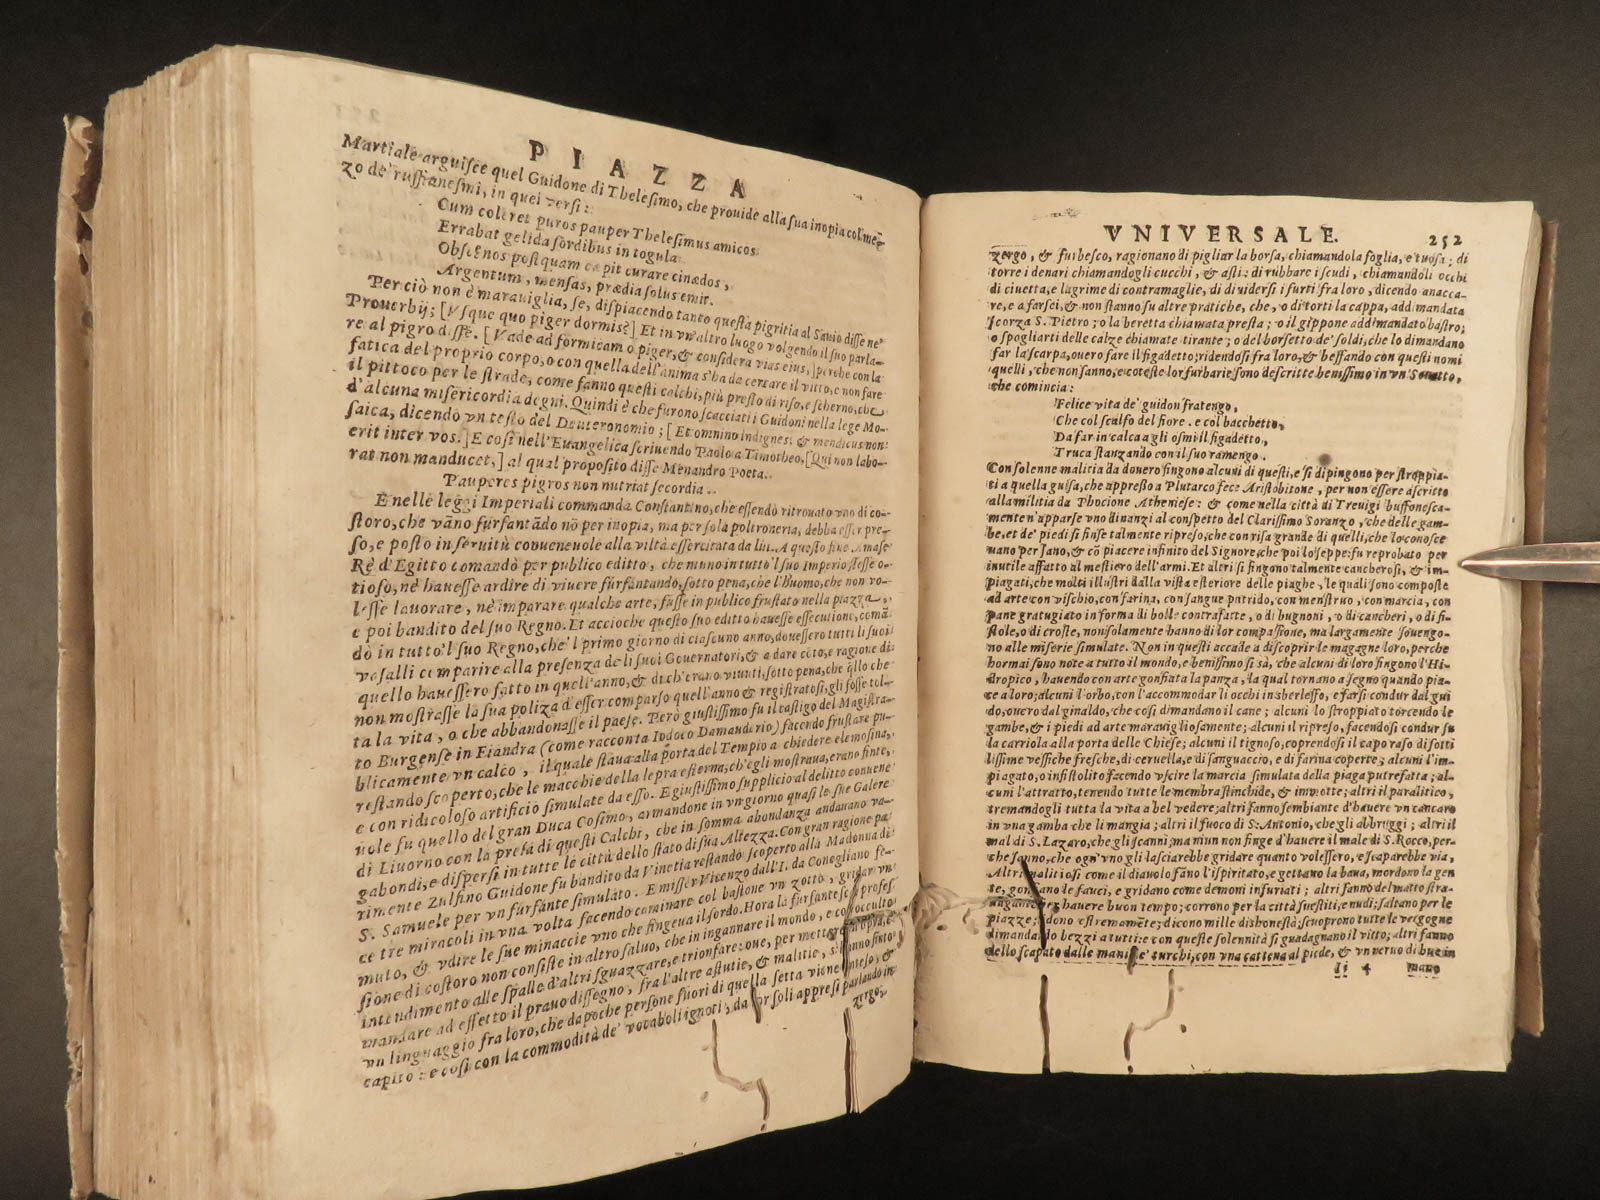 PIAZZA
Martiale arguisce quel Guidone di Thelesimo, che prouide alla sua inopia col mez̄-
zo de' ruffianesmi, in quei versi:
Cum coleret puros pauper Thelesimus amicos
Errabat gelida sordibus in togula
Obscęnos postquam cępit curare cinædos,
Argentum, mensas, prædia solus emit.
Per ciò non è marauiglia, se, dispiacendo tanto questa pigritia al Sauio disse ne'
Prouerbij; [Vsque quo piger dormis?] Et in vn'altro luogo volgendo il suo parla-
re al pigro disse. [Vade ad formicam o piger, & considera vias eius,] perche con la
fatica del proprio corpo, o con quella dell'anima s'ha da cercare il vitto, e non fare
il pittoco per le strade, come fanno questi calchi, più presto di riso, e scherno, che
d'alcuna misericordia degni. Quindi è che furono scacciati i Guidoni nella lege Mo-
saica, dicendo vn testo del Deuteronomio; [Et omnino indigens & mendicus non
erit inter vos.] E così nell'Euangelica scriuendo Paolo a Timotheo, [Qui non labo-
rat non manducet,] al qual proposito disse Menandro Poeta.
Pauperes pigros non nutriat secordia.
E nelle leggi Imperiali commanda Constantino, che essendo ritrouato vno di co-
storo, che vāno furfantādo nō per inopia, ma per sola poltroneria, debba esser pre-
so, e posto in seruitù conueneuole alla viltà essercitata da lui. A questo fine Amase
Rè d'Egitto comandò per publico editto, che niuno in tutto'l suo Imperio stesse o-
tioso, nè hauesse ardire di viuere furfantando, sotto pena, che l'huomo, che non vo-
lesse lauorare, nè imparare qualche arte, fusse in publico frustato nella piazza,
e poi bandito del suo Regno. Et accioche questo suo editto hauesse essecutione, comā-
dò in tutto'l suo Regno, che'l primo giorno di ciascuno anno, douessero tutti li suoi
vasalli comparire alla presenza de li suoi Gouernatori, & a dare cōto, e ragione di
quello hauessero fatto in quell'anno, & di ch'erano viuuti, sotto pena, che q̄llo che
non mostrasse la sua poliza d'esser comparso quell'anno & registratosi, gli fosse tol-
ta la vita, o che abbandonasse il paese. Però giustissimo fu il castigo del Magistra-
to Burgense in Fiandra (come racconta Iodoco Damauderio) facendo frustare pu-
blicamente vn calco, il quale staua alla porta del Tempio a chiedere elemosina,
restando scoperto, che le macchie della lepra esterna, ch'egli mostraua, erano finte,
e con ridicoloso artificio simulate da esso. E giustissimo supplicio al delitto conuene
uole fu quello del gran Duca Cosimo, armandone in vn giorno quasi le sue Galere
di Liuorno con la presa di questi Calchi, che in somma abondanza andauano va-
gabondi, e dispersi in tutte le città dello stato di sua Altezza. Con gran ragione pa
rimente Zulfino Guidone fu bandito da Vinetia restando scoperto alla Madonna di
S. Samuele per vn furfante simulato. E misser Vicenzo dall'I. da Conegliano fe-
ce tre miracoli in vna volta facendo caminar col bastone vn zotto, gridar vn
muto, & vdire le sue minaccie vno che fingeua il sordo. Hora la furfantesca profes
sione di costoro non consiste in altro saluo, che in ingannare il mondo, e con occulto
intendimento alle spalle d'altri sguazzare, e trionfare: oue, per mettere in opra, e
mandare ad effetto il prauo dissegno, fra l'altre astutie, & malitie, s'hanno finto
vn linguaggio fra loro, che da poche persone fuori di quella setta viene inteso, &
capito: e così con la commodità de' vocaboli ignoti, da lor soli appresi parlando in
zergo;
VNIVERSALE. 252
zergo, & furbesco, ragionano di pigliar la borsa, chiamandola foglia, e tuosa; di
torre i denari chiamandogli cucchi, & asti: di rubbare i scudi, chiamandoli occhi
di ciuetta, e lagrime di contramaglie, di diuidersi i furti fra loro, dicendo anacca-
re, e a farsei, & non stanno su altre pratiche, che, o di torti la cappa, addimandata
scorza S. Pietro; o la beretta chiamata presta; o il gippone addimandato bastro;
o spogliarti delle calze chiamate tirante; o del borsetto de' soldi, che lo dimandano
far la scarpa, ouero fare il figadetto; ridendosi fra loro, & beffando con questi nomi
quelli, che non sanno, e coteste lor furbarie sono descritte benissimo in vn' Sonetto,
che comincia:
Felice vita de' guidon fratengo,
Che col scalfo del fiore, e col bacchetto,
Da far in calca a gli osmi il figadetto,
Truca stanzando con il suo ramengo.
Con solenne malitia da douero fingono alcuni di questi, e si dipingono per stroppia-
ti a quella guisa, che appresso a Plutarco fece Aristobitone, per non essere ascritto
alla militia da Phocione Atheniese: & come nella città di Treuigi buffonesca-
mente n'apparse vno dinanzi al conspetto del Clarissimo Soranzo, che delle gam-
be, et de' piedi si finse talmente ripreso, che con risa grande di quelli, che lo conosce
uano per sano, & cō piacere infinito del Signore, che poi lo seppe: fu reprobato per
inutile affatto al mestiero dell'armi. Et altri si fingono talmente cancherosi, & im-
piagati, che molti illustri dalla vista esteriore delle piaghe, le quali sono composte
ad arte con vischio, con farina, con sangue putrido, con menstruo, con marcia, con
pane gratugiato in forma di bolle contrafatte, o di bugnoni, o di cancheri, o di fi-
stole, o di croste, non solamente hanno di lor compassione, ma largamente souengo-
no alle miserie simulate. Non in questi accade a discoprir le magagne loro, perche
hormai sono note a tutto il mondo, e benissimo si sà, che alcuni di loro fingono l'Hi-
dropico, hauendo con arte gonfiata la panza, la qual tornano a segno quando pia-
ce a loro; alcuni l'orbo, con l'accommodar li occhi in sberleffo, e farsi condur dal gui
do, ouero dal ginaldo, che così dimandano il cane; alcuni lo stroppiato torcendo le
gambe, & i piedi ad arte marauigliosamente; alcuni il ripreso, facendosi condur su
la carriola alla porta delle Chiese; alcuni il tignoso, coprendosi il capo raso di sotti
lissime vessiche fresche, di ceruella, e di sanguaccio, e di farina coperte; alcuni l'im-
piagato, o infistolito facendo vscire la marcia simulata della piaga putrefatta; al-
cuni l'attratto, tenendo tutte le membra stinchide, & immote; altri il paralitico,
tremandogli tutta la vita a bel vedere; altri fanno sembiante d'hauere vn cancaro
in vna gamba che li mangia; altri il fuoco di S. Antonio, che gli abbruggi; altri il
mal di S. Lazaro, che gli scanni; ma niun non finge d'hauere il male di S. Rocco, per-
che sanno, che ogn'vno gli lasciarebbe gridare quanto volessero, e scaparebbe via,
Altri malitiosi come il diauolo fanno l'ispiritato, e gettano la baua, mordono la gen
te, gonfiano le fauci, e gridano come demoni infuriati; altri fanno del matto stra-
uagante per hauere buon tempo; corrono per la città suestiti, e nudi; saltano per le
piazze; ridono estremamēte; dicono mille dishonestà; scuoprono tutte le vergogne
dimandando bezzi a tutti: e con queste solennità si guadagnano il vitto; altri fanno
dello scapato dalle mani de' turchi, con vna cattena al piede, & vn neruo di bue in
Ii 4 mano